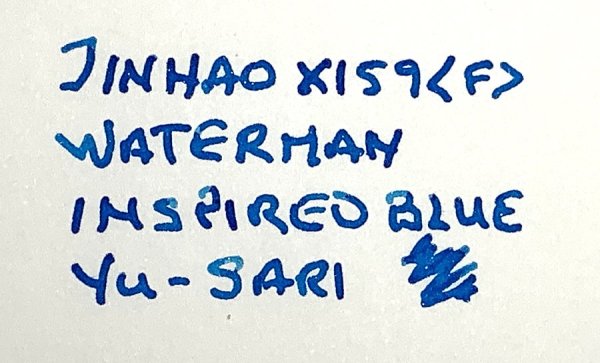 JINHAO X159<F>
WATERMAN
INSPIRED BLUE
Yu-SARI